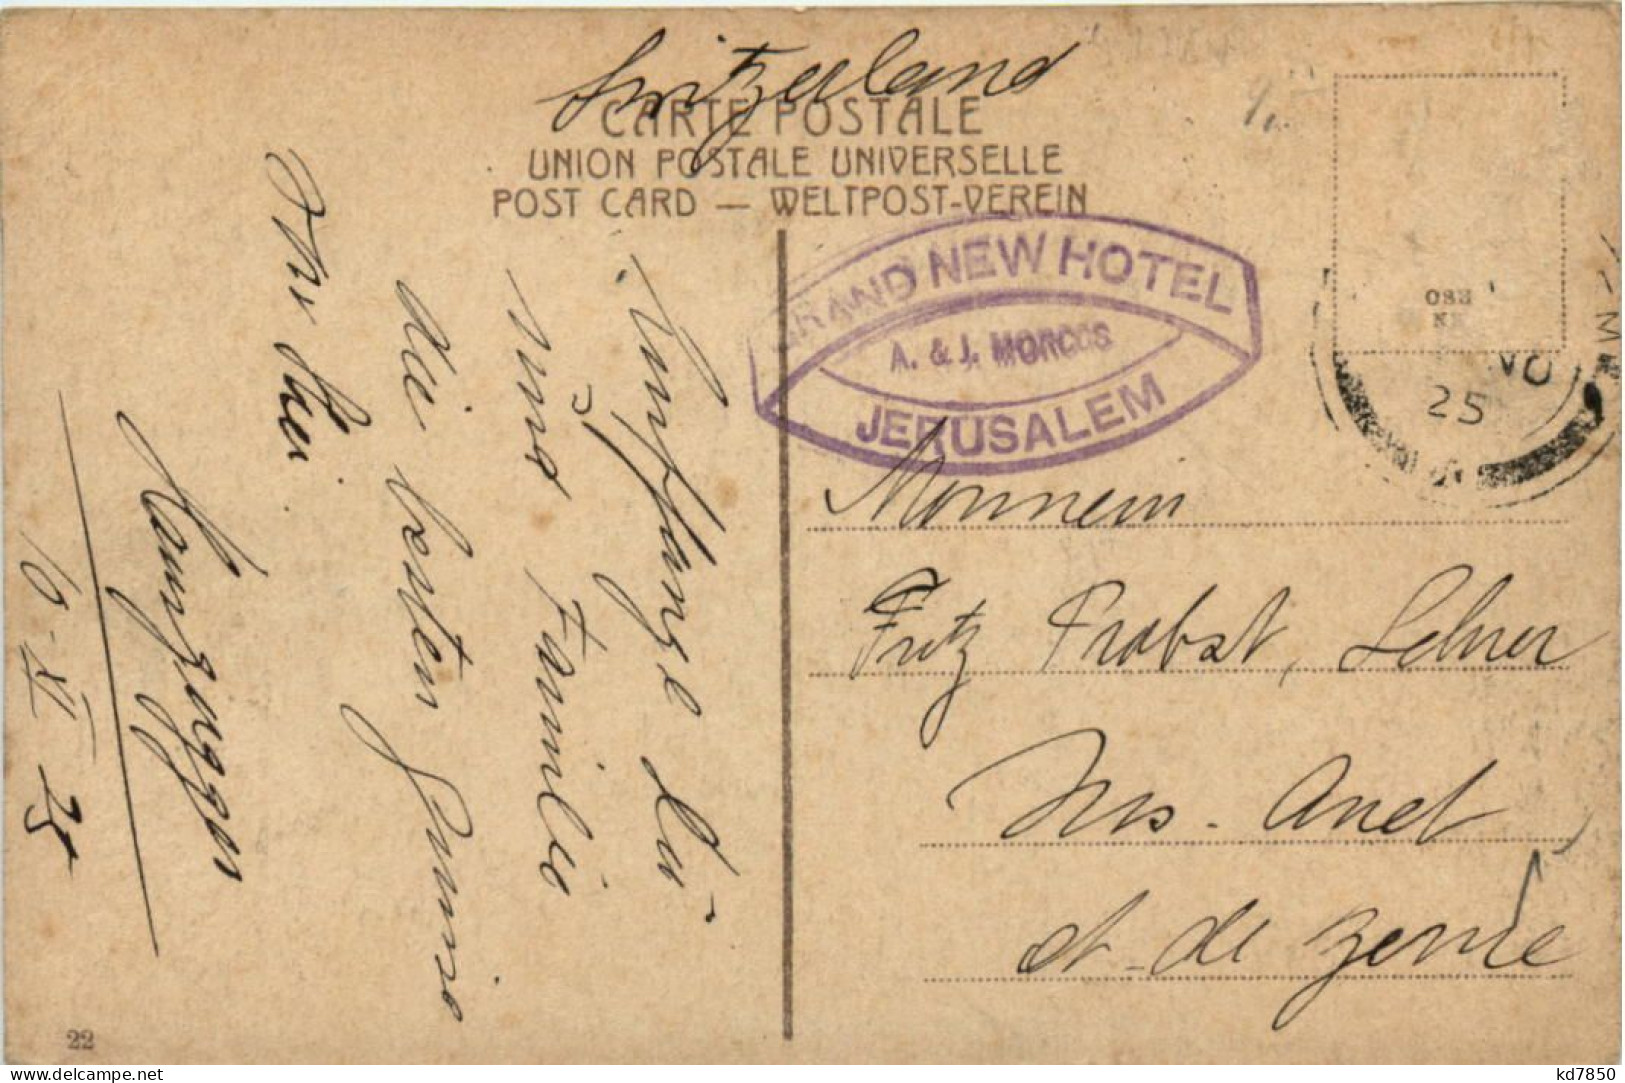 Switzerland
CARTE POSTALE
UNION POSTALE UNIVERSELLE
POST CARD — WELTPOST-VEREIN
GRAND NEW HOTEL
A. & J. MORCOS
JERUSALEM
NO
25
Fritz Probst, Lehrer
Ins. Anet
ct. de Berne
Empfange Du
und Familie
die besten Grüsse
von
6. XI 25
22
delcampe.net
kd7850